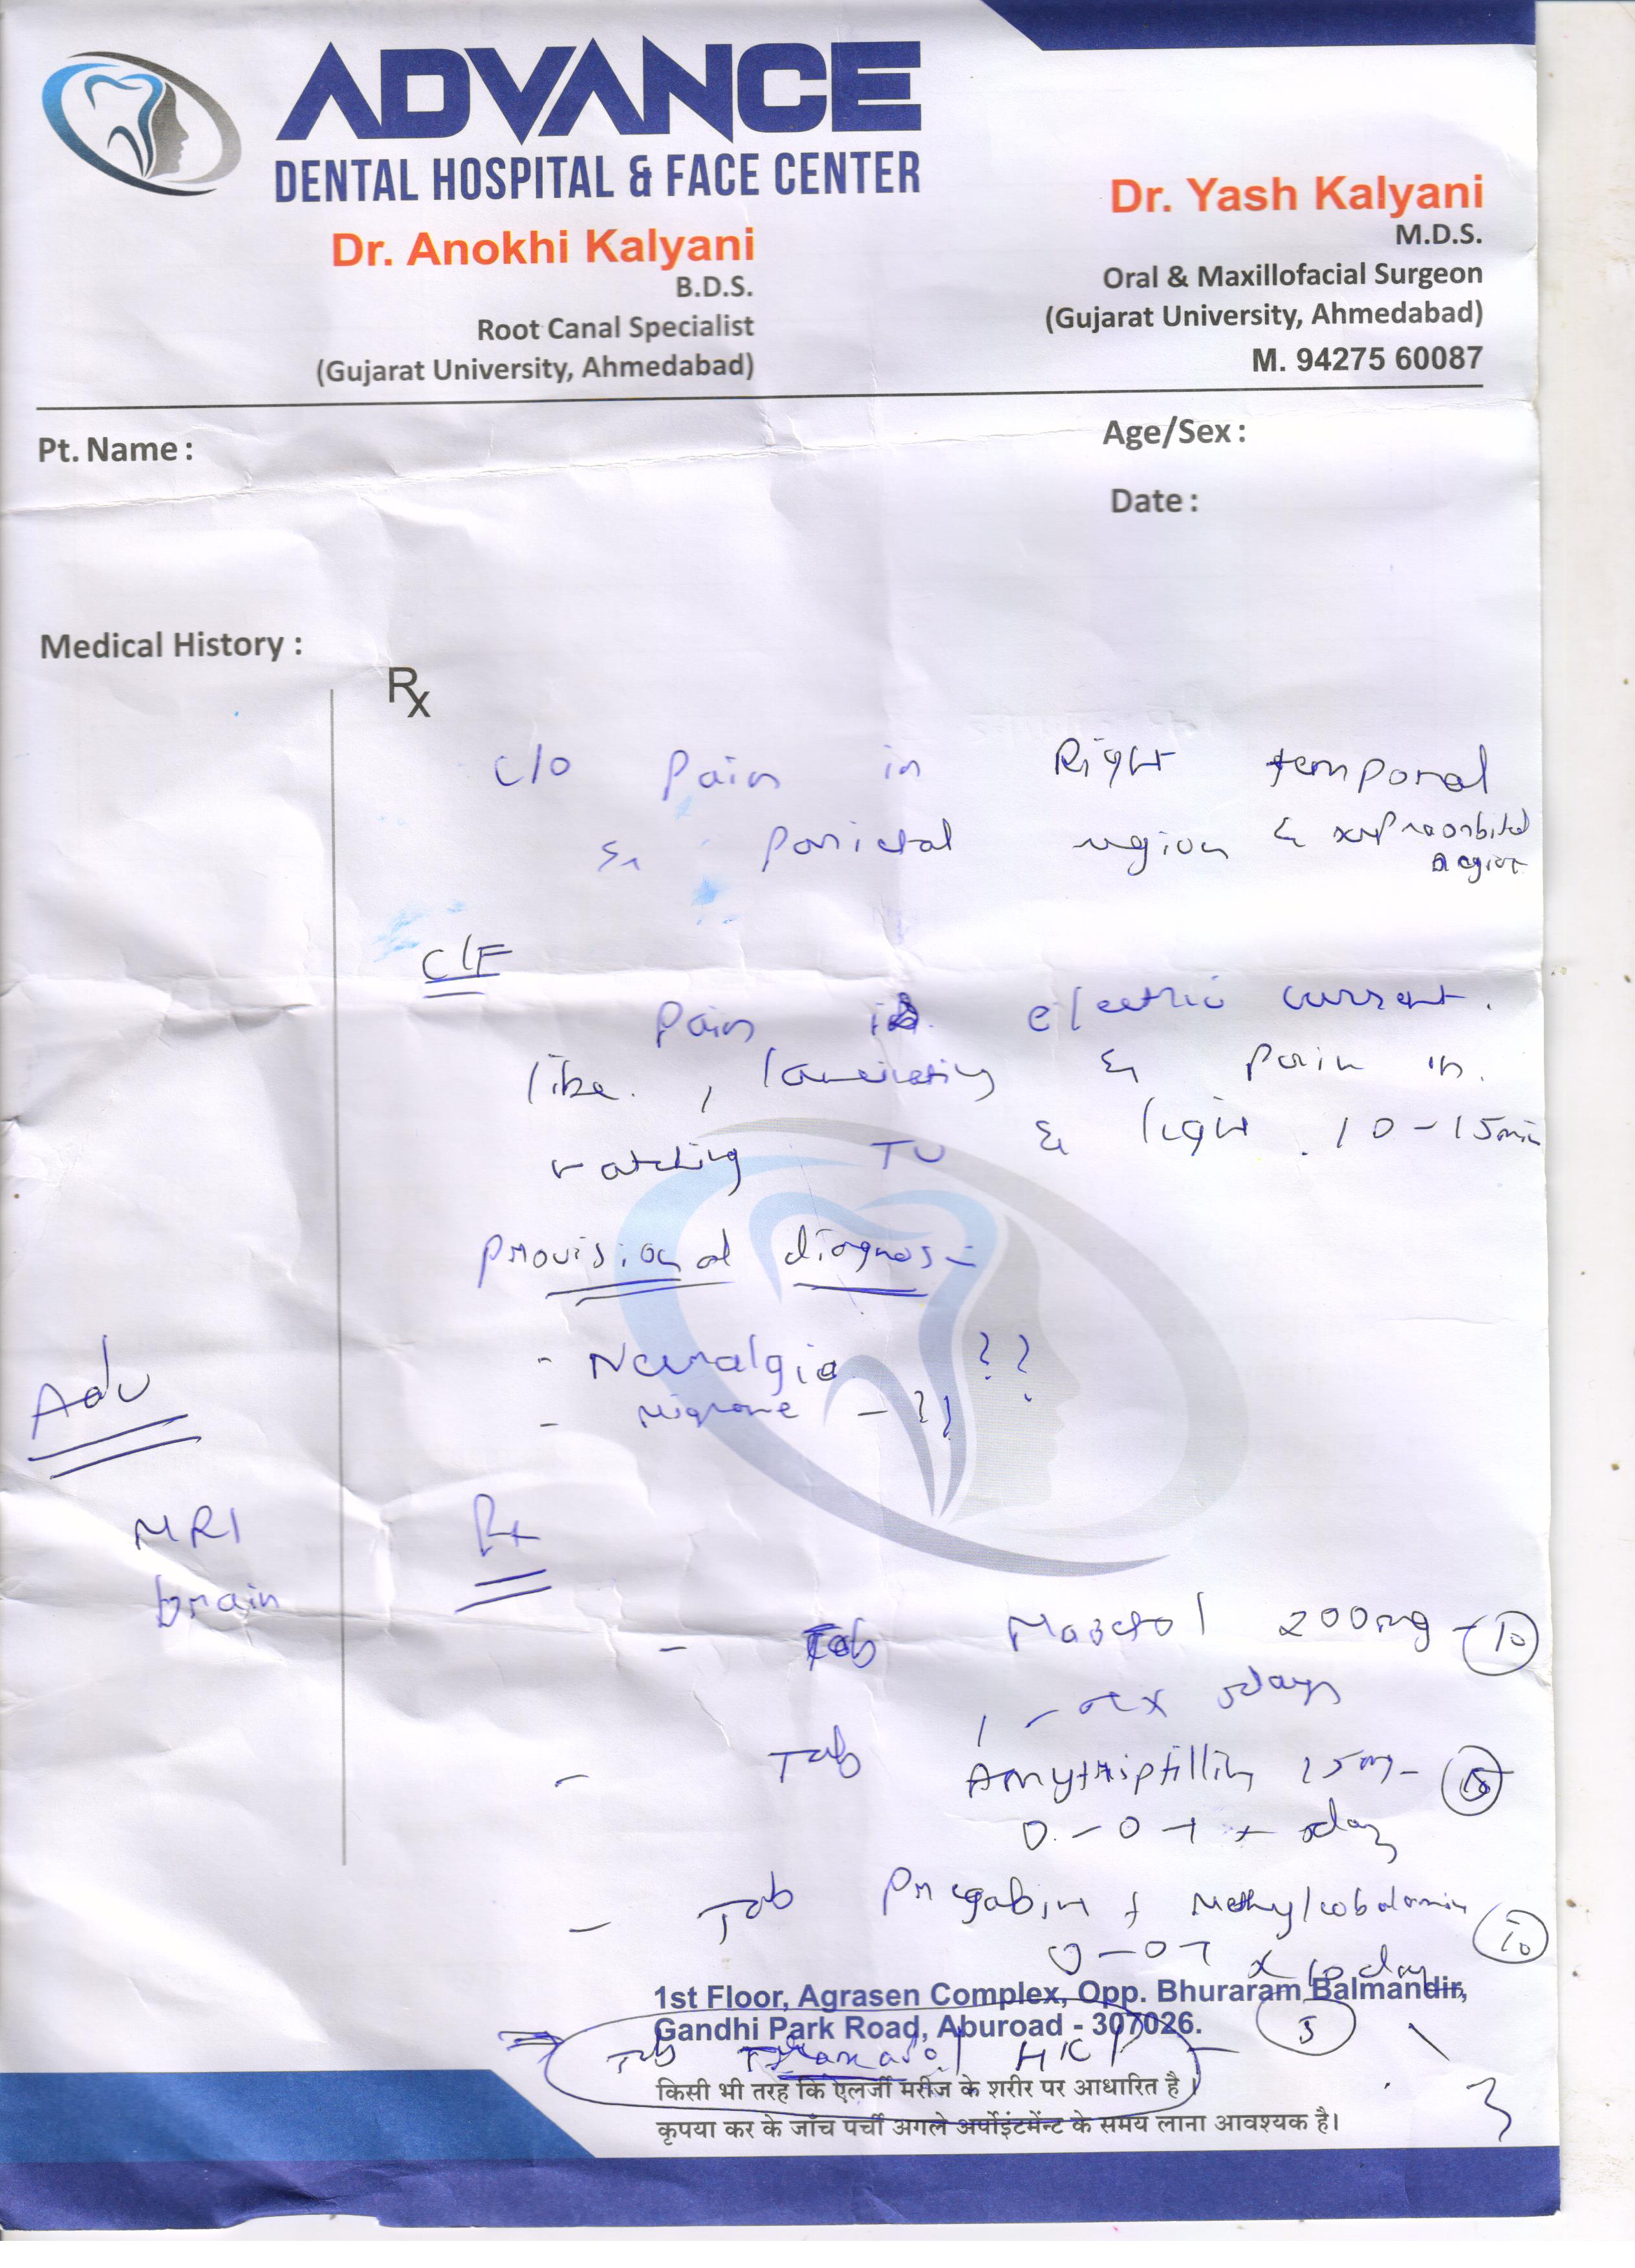 ADVANCE
DENTAL HOSPITAL & FACE CENTER
Dr. Anokhi Kalyani
B.D.S.
Root Canal Specialist
(Gujarat University, Ahmedabad)
Dr. Yash Kalyani
M.D.S.
Oral & Maxillofacial Surgeon
(Gujarat University, Ahmedabad)
M. 94275 60087
Pt. Name :
Age/Sex :
Date :
Medical History :
Rx
c/o Pain in Right temporal
& parietal region & supraorbital
region
C/F
Pain is electric current.
like , & Pain in
watching TV & light 10-15min
Provisional diagnos
- Neuralgia ??
- Migrane - ??
Adv
MRI
brain
Rx
- Tab 200mg - 10
5days
- Tab Amythiptillin
0-0-1 x
- Tab Pregabin + Methylcobalamin 10
0-0-1 x 10 day
1st Floor, Agrasen Complex, Opp. Bhuraram Balmandir,
Gandhi Park Road, Aburoad - 307026.
5
Tab Tramadol
किसी भी तरह कि ऐलर्जी मरीज के शरीर पर आधारित है।
कृपया कर के जाँच पर्ची अगले अर्पोइंटमेंन्ट के समय लाना आवश्यक है।